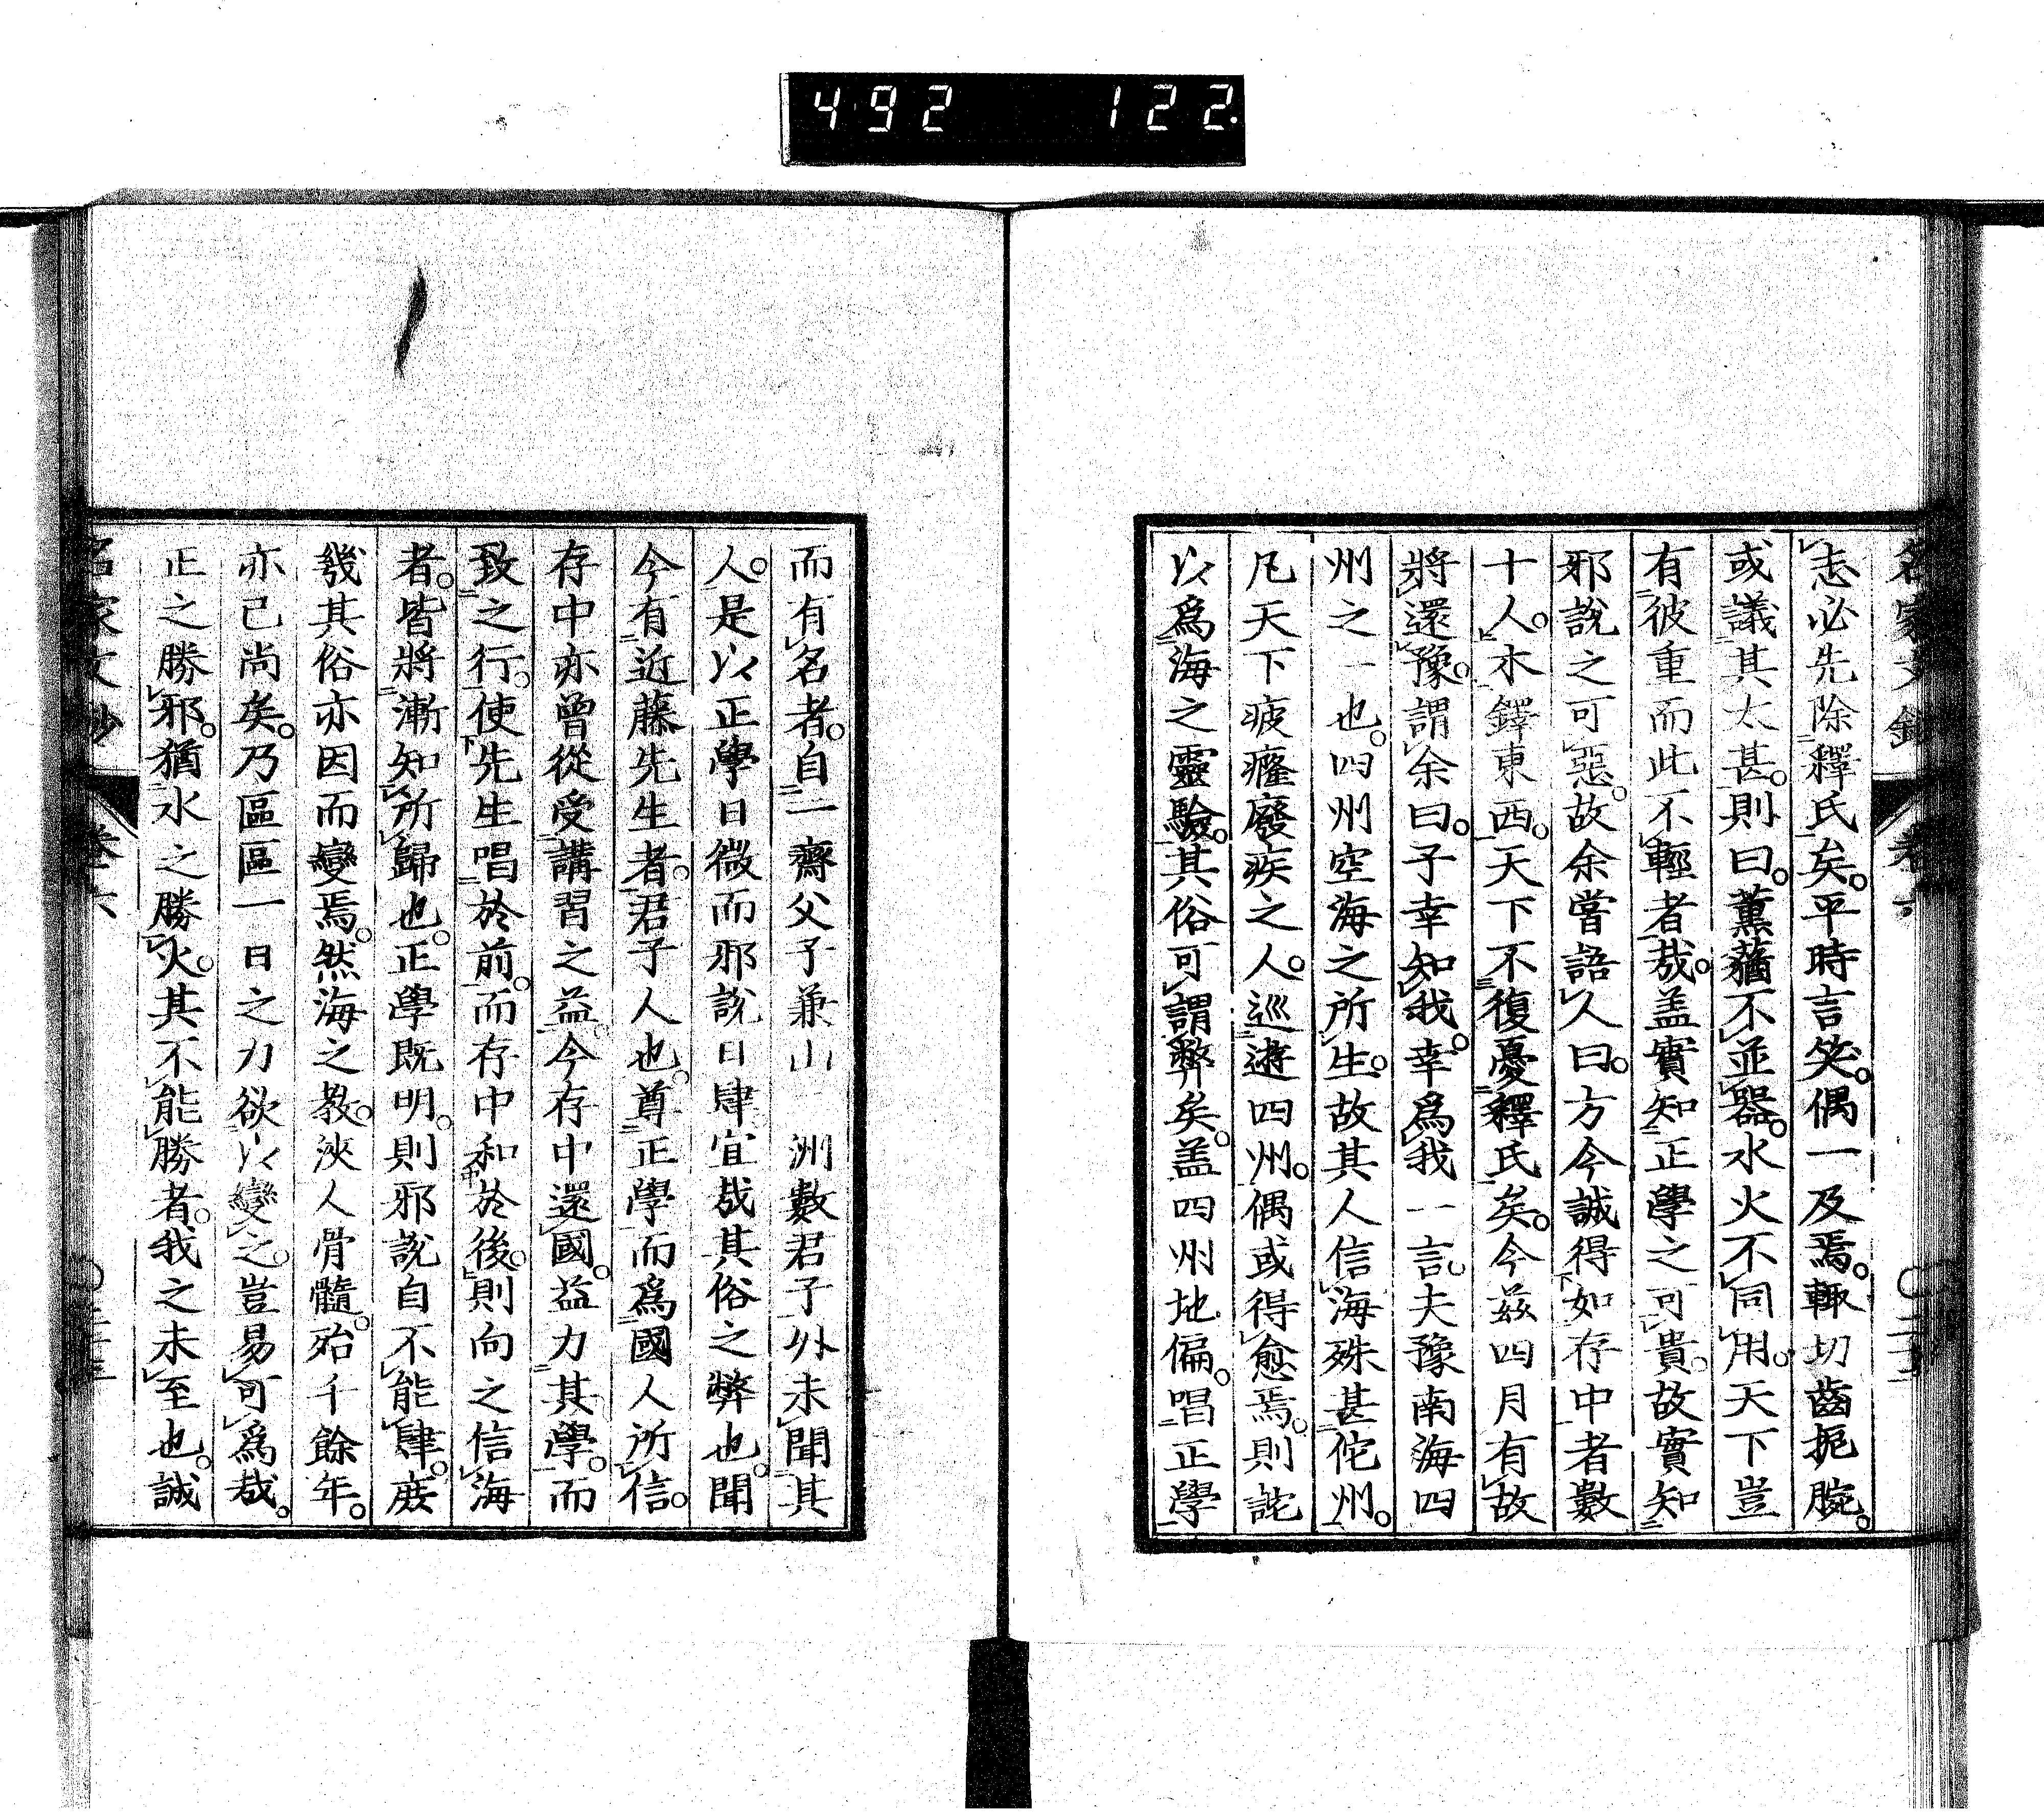 492 122
志必先除釋氏矣。平時言笑。偶一及焉。輙切齒扼腕。
或議其太甚。則曰。薰蕕不並器。水火不同用。天下豈
有彼重而此不輕者哉。盖實知正學之可貴。故實知
邪說之可惡。故余嘗語人曰。方今誠得如存中者數
十人。木鐸東西。天下不復憂釋氏矣。今茲四月有故
將還豫。謂余曰。子幸知我。幸爲我一言。夫豫南海四
州之一也。四州空海之所生。故其人信海殊甚佗州。
凡天下疲癃廢疾之人。巡遊四州。偶或得愈焉。則詫
以爲海之靈驗。其俗可謂弊矣。盖四州地偏。唱正學
而有名者。自一齋父子兼山 洲數君子外未聞其
人。是以正學日微而邪說日肆宜哉其俗之弊也。聞
今有近藤先生者。君子人也。尊正學而爲國人所信。
存中亦曾從受講習之益。今存中還國。益力其學。而
致之行。使先生唱於前。而存中和於後。則向之信海
者。皆將漸知所歸也。正學既明。則邪說自不能肆。庶
幾其俗亦因而變焉。然海之教。浹人骨髓。殆千餘年。
亦已尚矣。乃區區一日之力欲以變之。豈易可爲哉。
正之勝邪。猶水之勝火。其不能勝者。我之未至也。誠
名家文鈔 卷六